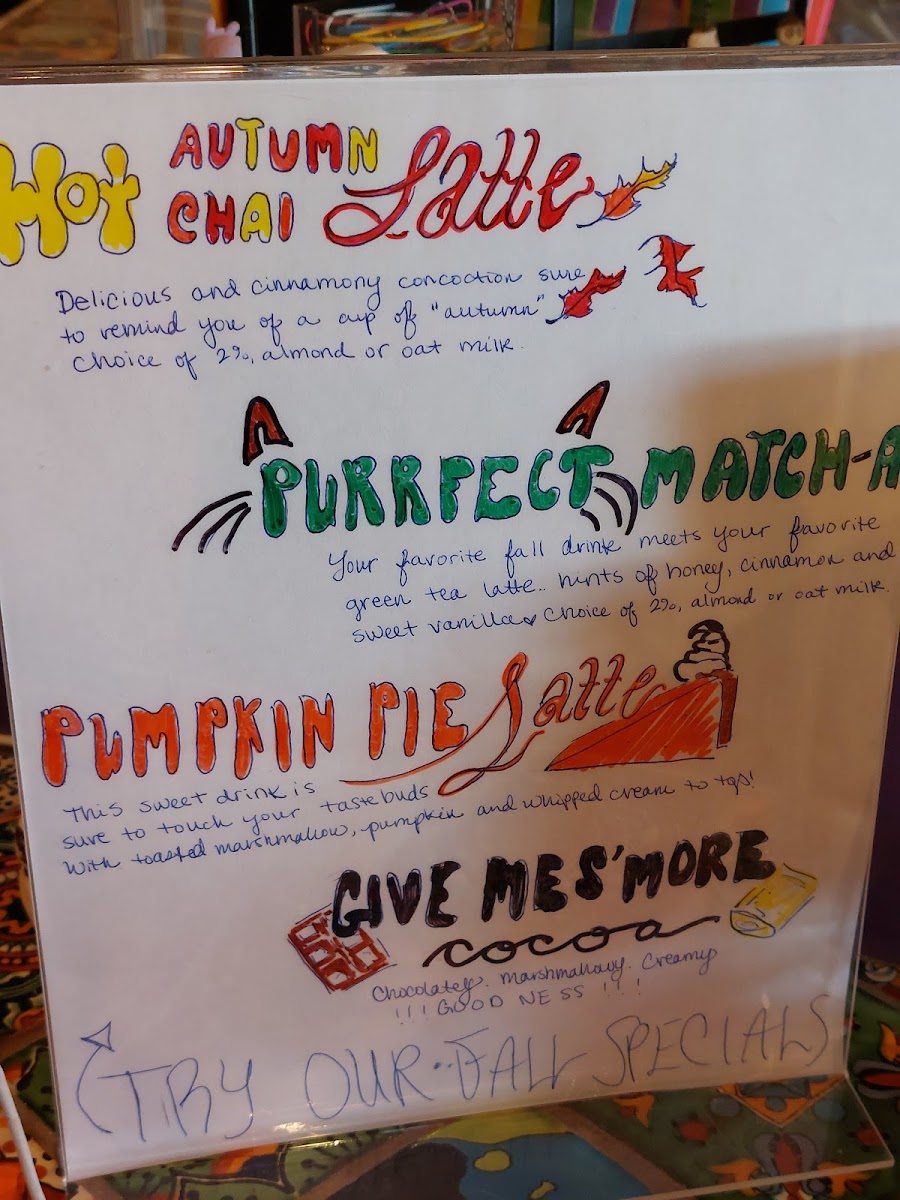 HOT AUTUMN CHAI Latte
Delicious and cinnamony concoction sure
to remind you of a cup of "autumn"
choice of 2%, almond or oat milk.
PURRFECT MATCH-A
Your favorite fall drink meets your favorite
green tea latte.. hints of honey, cinnamon and
sweet vanilla♥ Choice of 2%, almond or oat milk.
PUMPKIN PIE Latte
This sweet drink is
sure to touch your tastebuds
with toasted marshmallow, pumpkin and whipped cream to top!
GIVE ME S'MORE
cocoa
Chocolatey. Marshmallowy. Creamy
!!! GOODNESS !!!
TRY OUR FALL SPECIALS